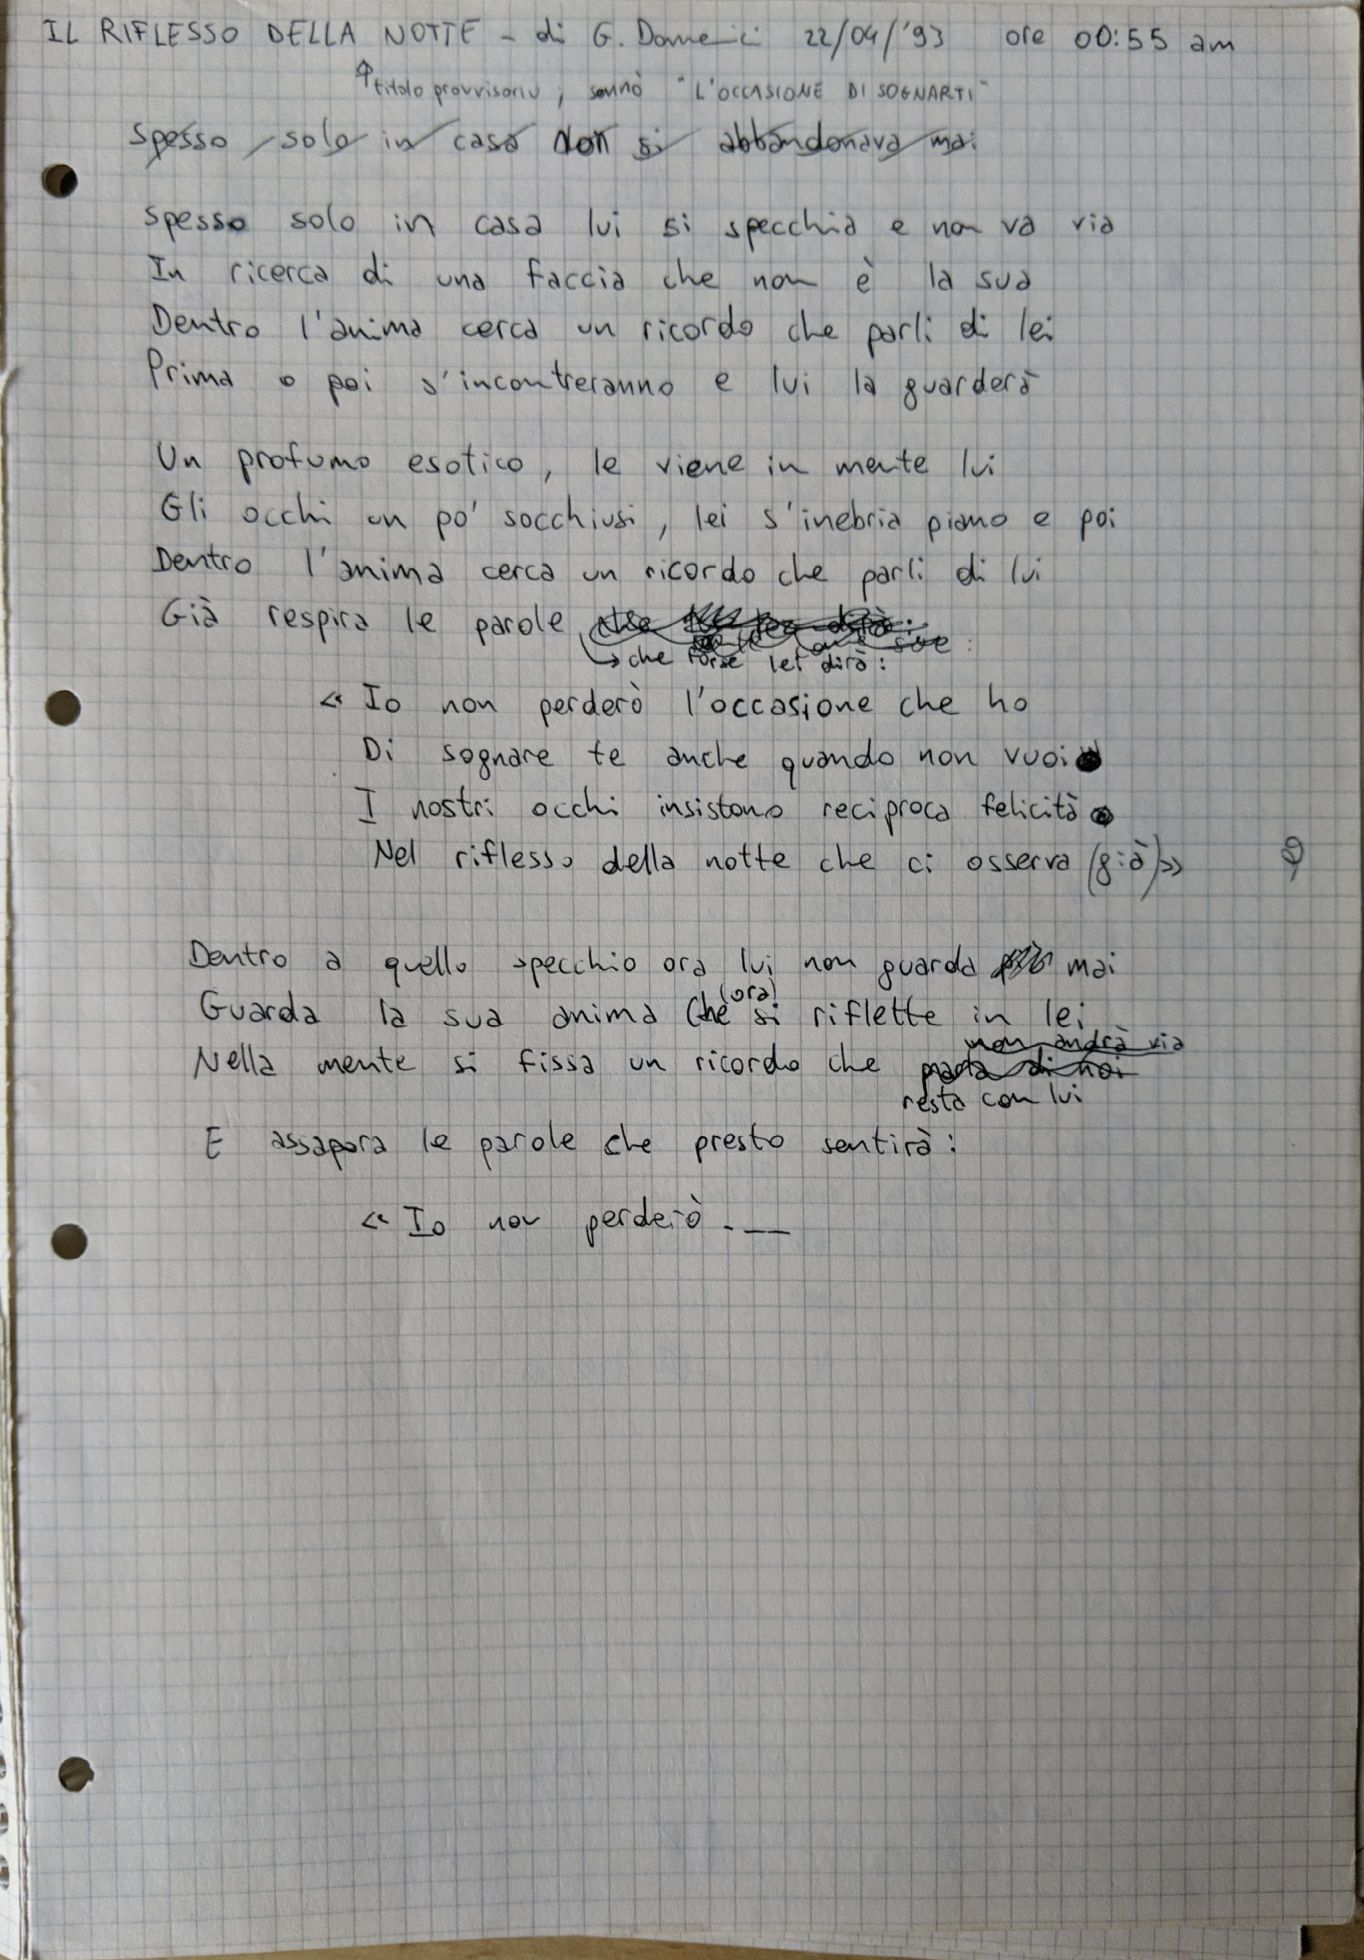 IL RIFLESSO DELLA NOTTE - di G. Domenici 22/04/'93 ore 00:55 am
↑ titolo provvisorio; sennò "L'OCCASIONE DI SOGNARTI"
Spesso, solo in casa non si abbandonava mai
Spesso solo in casa lui si specchia e non va via
In ricerca di una faccia che non è la sua
Dentro l'anima cerca un ricordo che parli di lei
Prima o poi s'incontreranno e lui la guarderà
Un profumo esotico, le viene in mente lui
Gli occhi un po' socchiusi, lei s'inebria piano e poi
Dentro l'anima cerca un ricordo che parli di lui
Già respira le parole
→ che forse lei dirà:
« Io non perderò l'occasione che ho
Di sognare te anche quando non vuoi
I nostri occhi insistono reciproca felicità
Nel riflesso della notte che ci osserva (già) »
Dentro a quello specchio ora lui non guarda più mai
(ora)
Guarda la sua anima che si riflette in lei
non andrà via
Nella mente si fissa un ricordo che parla di noi
resta con lui
E assapora le parole che presto sentirà:
« Io non perderò .__